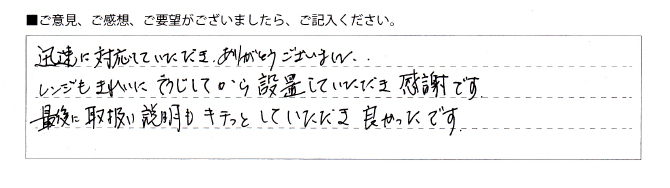 ■ご意見、ご感想、ご要望がございましたら、ご記入ください。
迅速に対応していただき、ありがとうございました。
レンジもきれいにそうじしてから設置していただき感謝です。
最後に取扱い説明もキチっとしていただき良かったです。